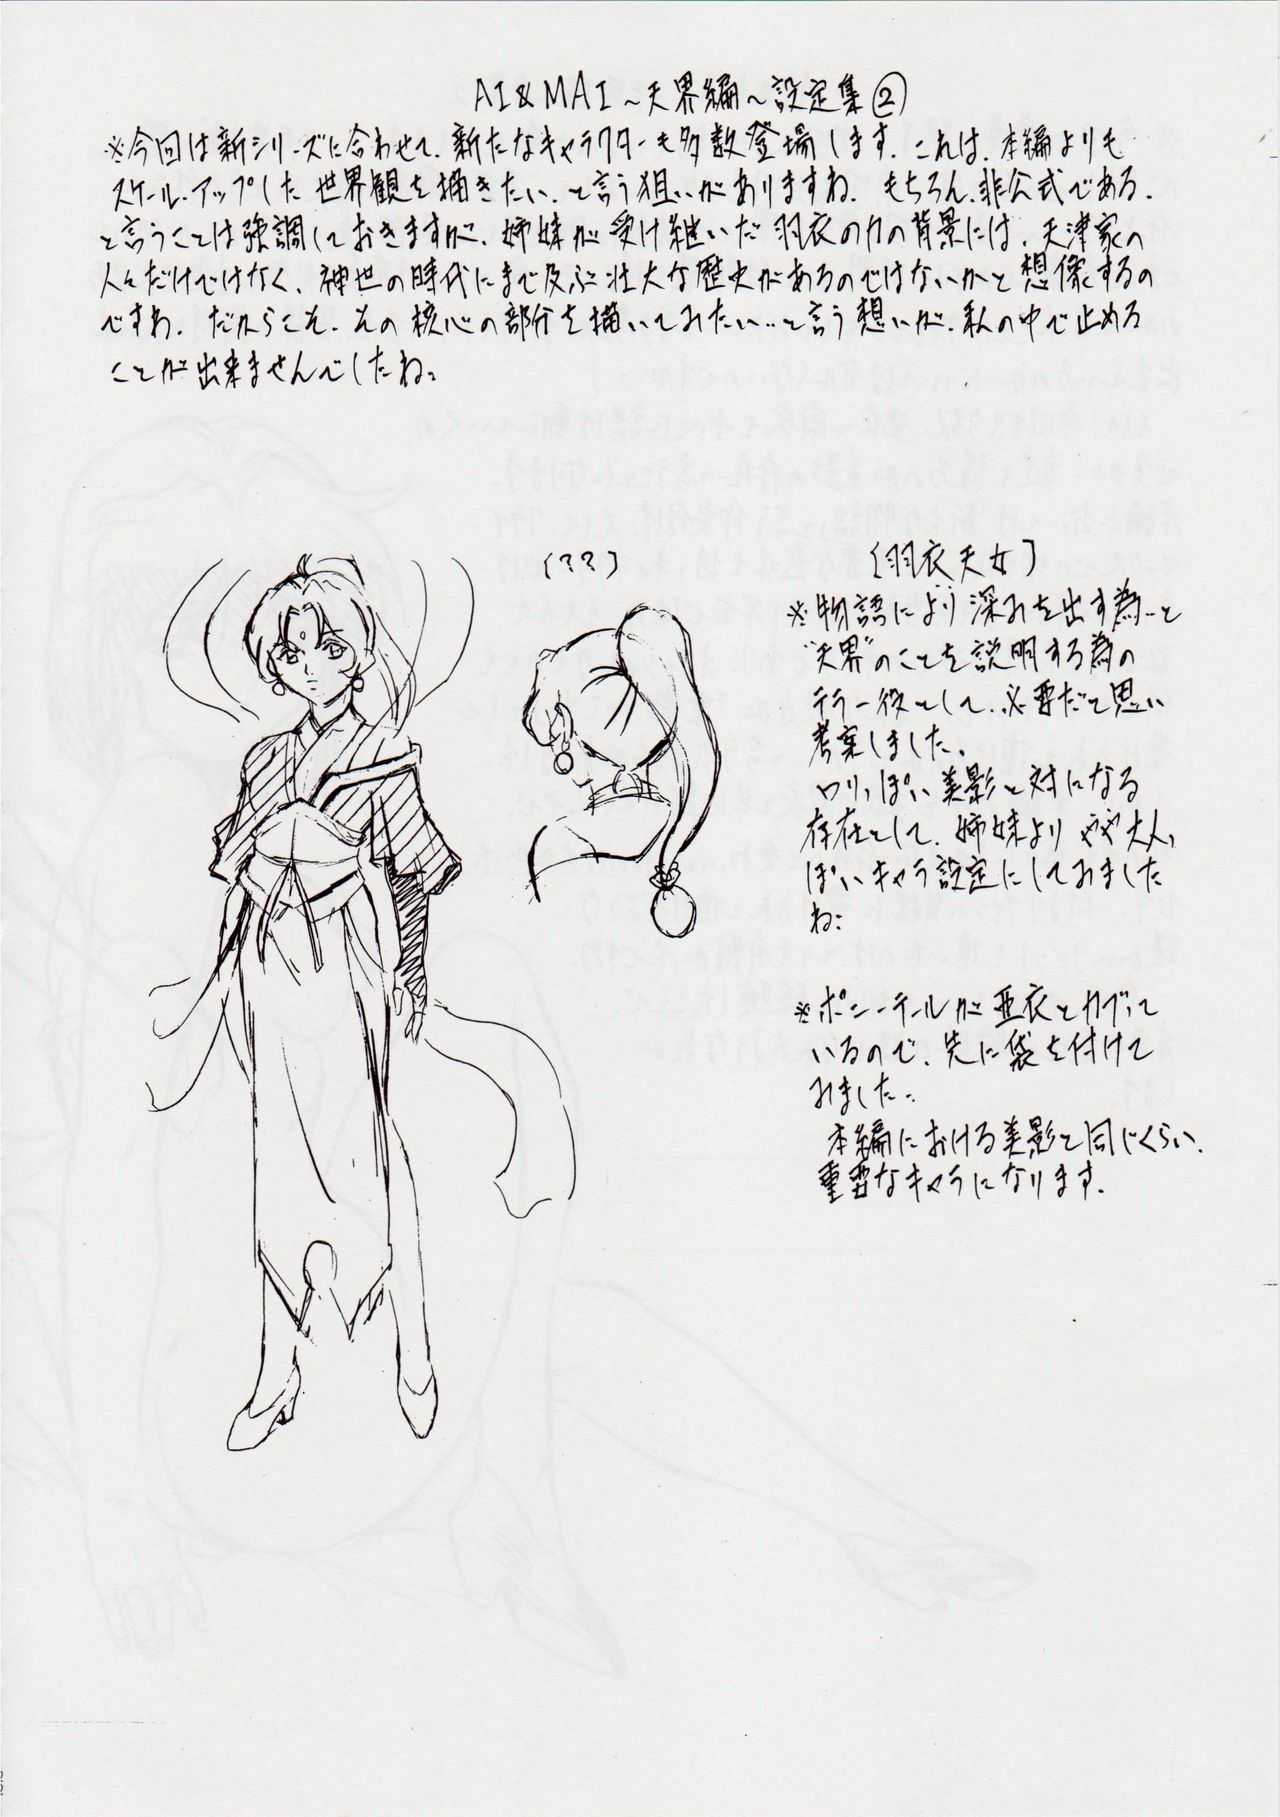 AI&MAI〜天界編〜設定集②
※今回は新シリーズに合わせて、新たなキャラクターも多数登場します。これは、本編よりも
スケール・アップした世界観を描きたい、と言う狙いがありますね。もちろん、非公式である、
と言うことは強調しておきますが、姉妹が受け継いだ羽衣の力の背景には、天津家の
人々だけではなく、神世の時代にまで及ぶ壮大な歴史があるのではないかと想像するの
ですわ。だからこそ、その核心の部分を描いてみたい…と言う想いが、私の中で止める
ことが出来ませんでしたね。
(??)
[羽衣天女]
※物語により深みを出す為…と
"天界"のことを説明する為の
テラー役として、必要だと思い
考案しました。
ロリっぽい美影と対になる
存在として、姉妹よりやや大人っ
ぽいキャラ設定にしてみました
ね…
※ポニーテールが亜衣とカブって
いるので、先に袋を付けて
みました…
本編における美影と同じくらい、
重要なキャラになります。